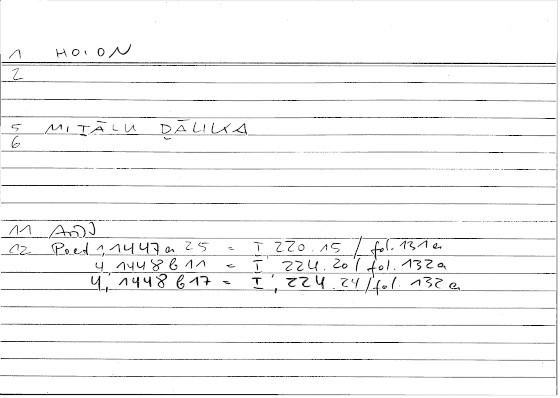 1 HOION
2
5 MIṮĀLU ḎĀLIKA
6
11 AnDJ
12 Poet 1, 1447a 25 = I 220.15 / fol. 131a
4, 1448b11 = I, 224.20 / fol. 132a
4, 1448b17 = I, 224.24 / fol. 132a